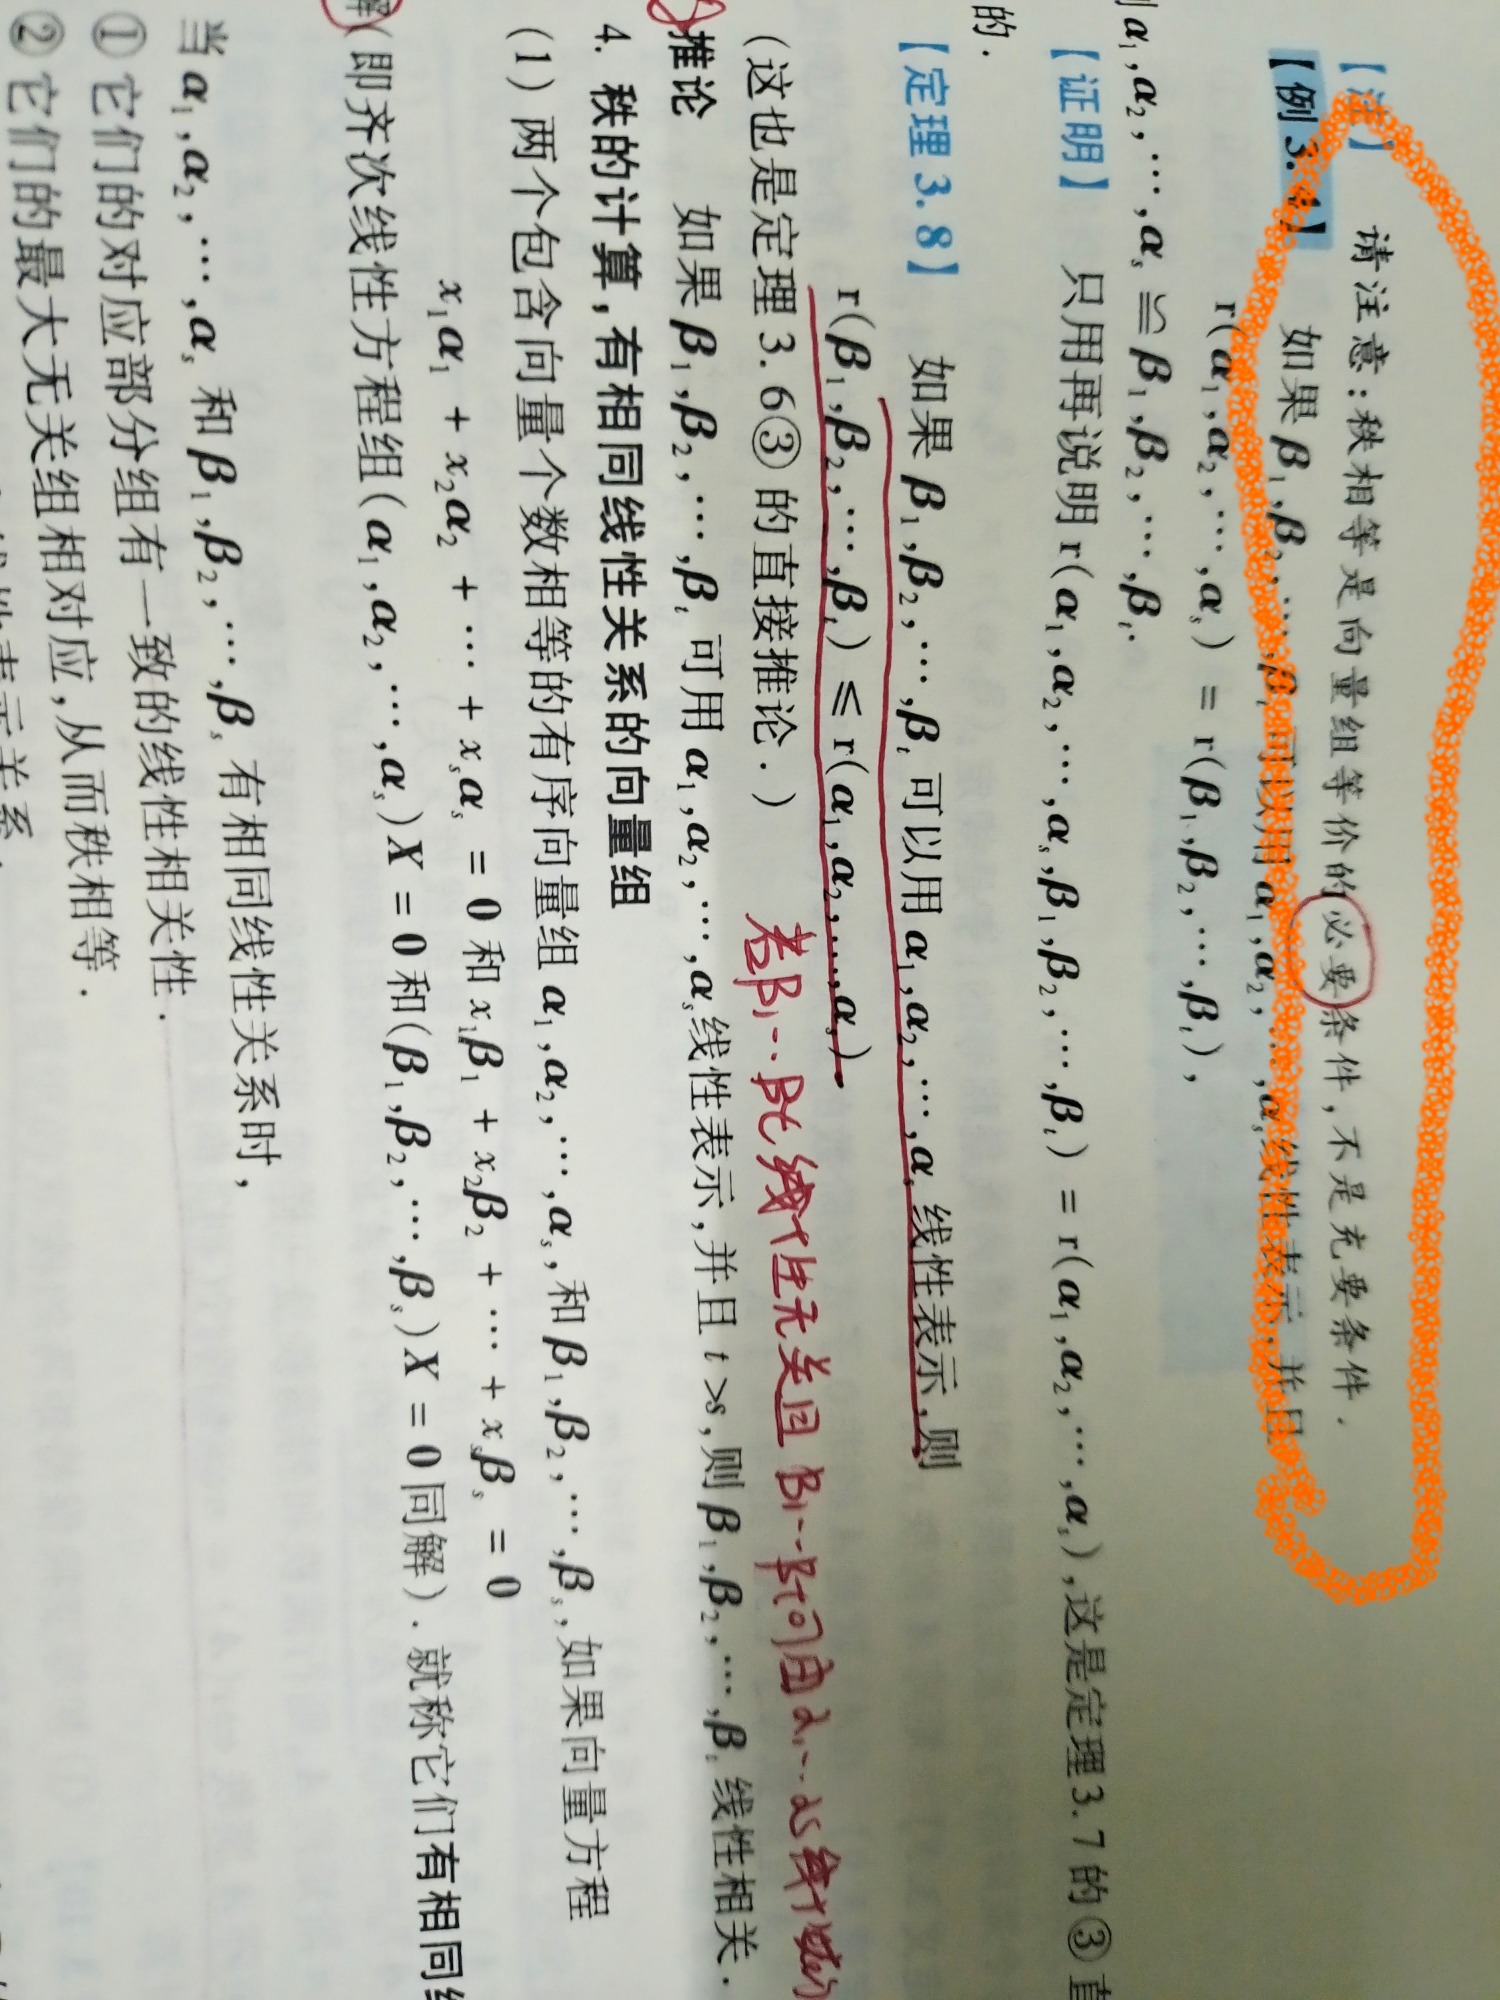 【注】 请注意:秩相等是向量组等价的必要条件,不是充要条件.
【例3.4】 如果β₁,β₂,…,βₜ可以用α₁,α₂,…,αₛ线性表示,并且
r(α₁,α₂,…,αₛ) = r(β₁,β₂,…,βₜ),
则α₁,α₂,…,αₛ ≌ β₁,β₂,…,βₜ.
【证明】 只用再说明r(α₁,α₂,…,αₛ,β₁,β₂,…,βₜ) = r(α₁,α₂,…,αₛ),这是定理3.7的③直
的.
【定理3.8】 如果β₁,β₂,…,βₜ可以用α₁,α₂,…,αₛ线性表示,则
r(β₁,β₂,…,βₜ) ≤ r(α₁,α₂,…,αₛ).
(这也是定理3.6③的直接推论.)
若β₁…βt线性无关且β₁…βt可由α₁…αs线性
推论 如果β₁,β₂,…,βₜ可用α₁,α₂,…,αₛ线性表示,并且t>s,则β₁,β₂,…,βₜ线性相关.
4. 秩的计算,有相同线性关系的向量组
(1)两个包含向量个数相等的有序向量组α₁,α₂,…,αₛ,和β₁,β₂,…,βₛ,如果向量方程
x₁α₁ + x₂α₂ + … + xₛαₛ = 0和x₁β₁ + x₂β₂ + … + xₛβₛ = 0
解(即齐次线性方程组(α₁,α₂,…,αₛ)X = 0和(β₁,β₂,…,βₛ)X = 0同解).就称它们有相同
当α₁,α₂,…,αₛ和β₁,β₂,…,βₛ有相同线性关系时,
①它们的对应部分组有一致的线性相关性.
②它们的最大无关组相对应,从而秩相等.
关系.